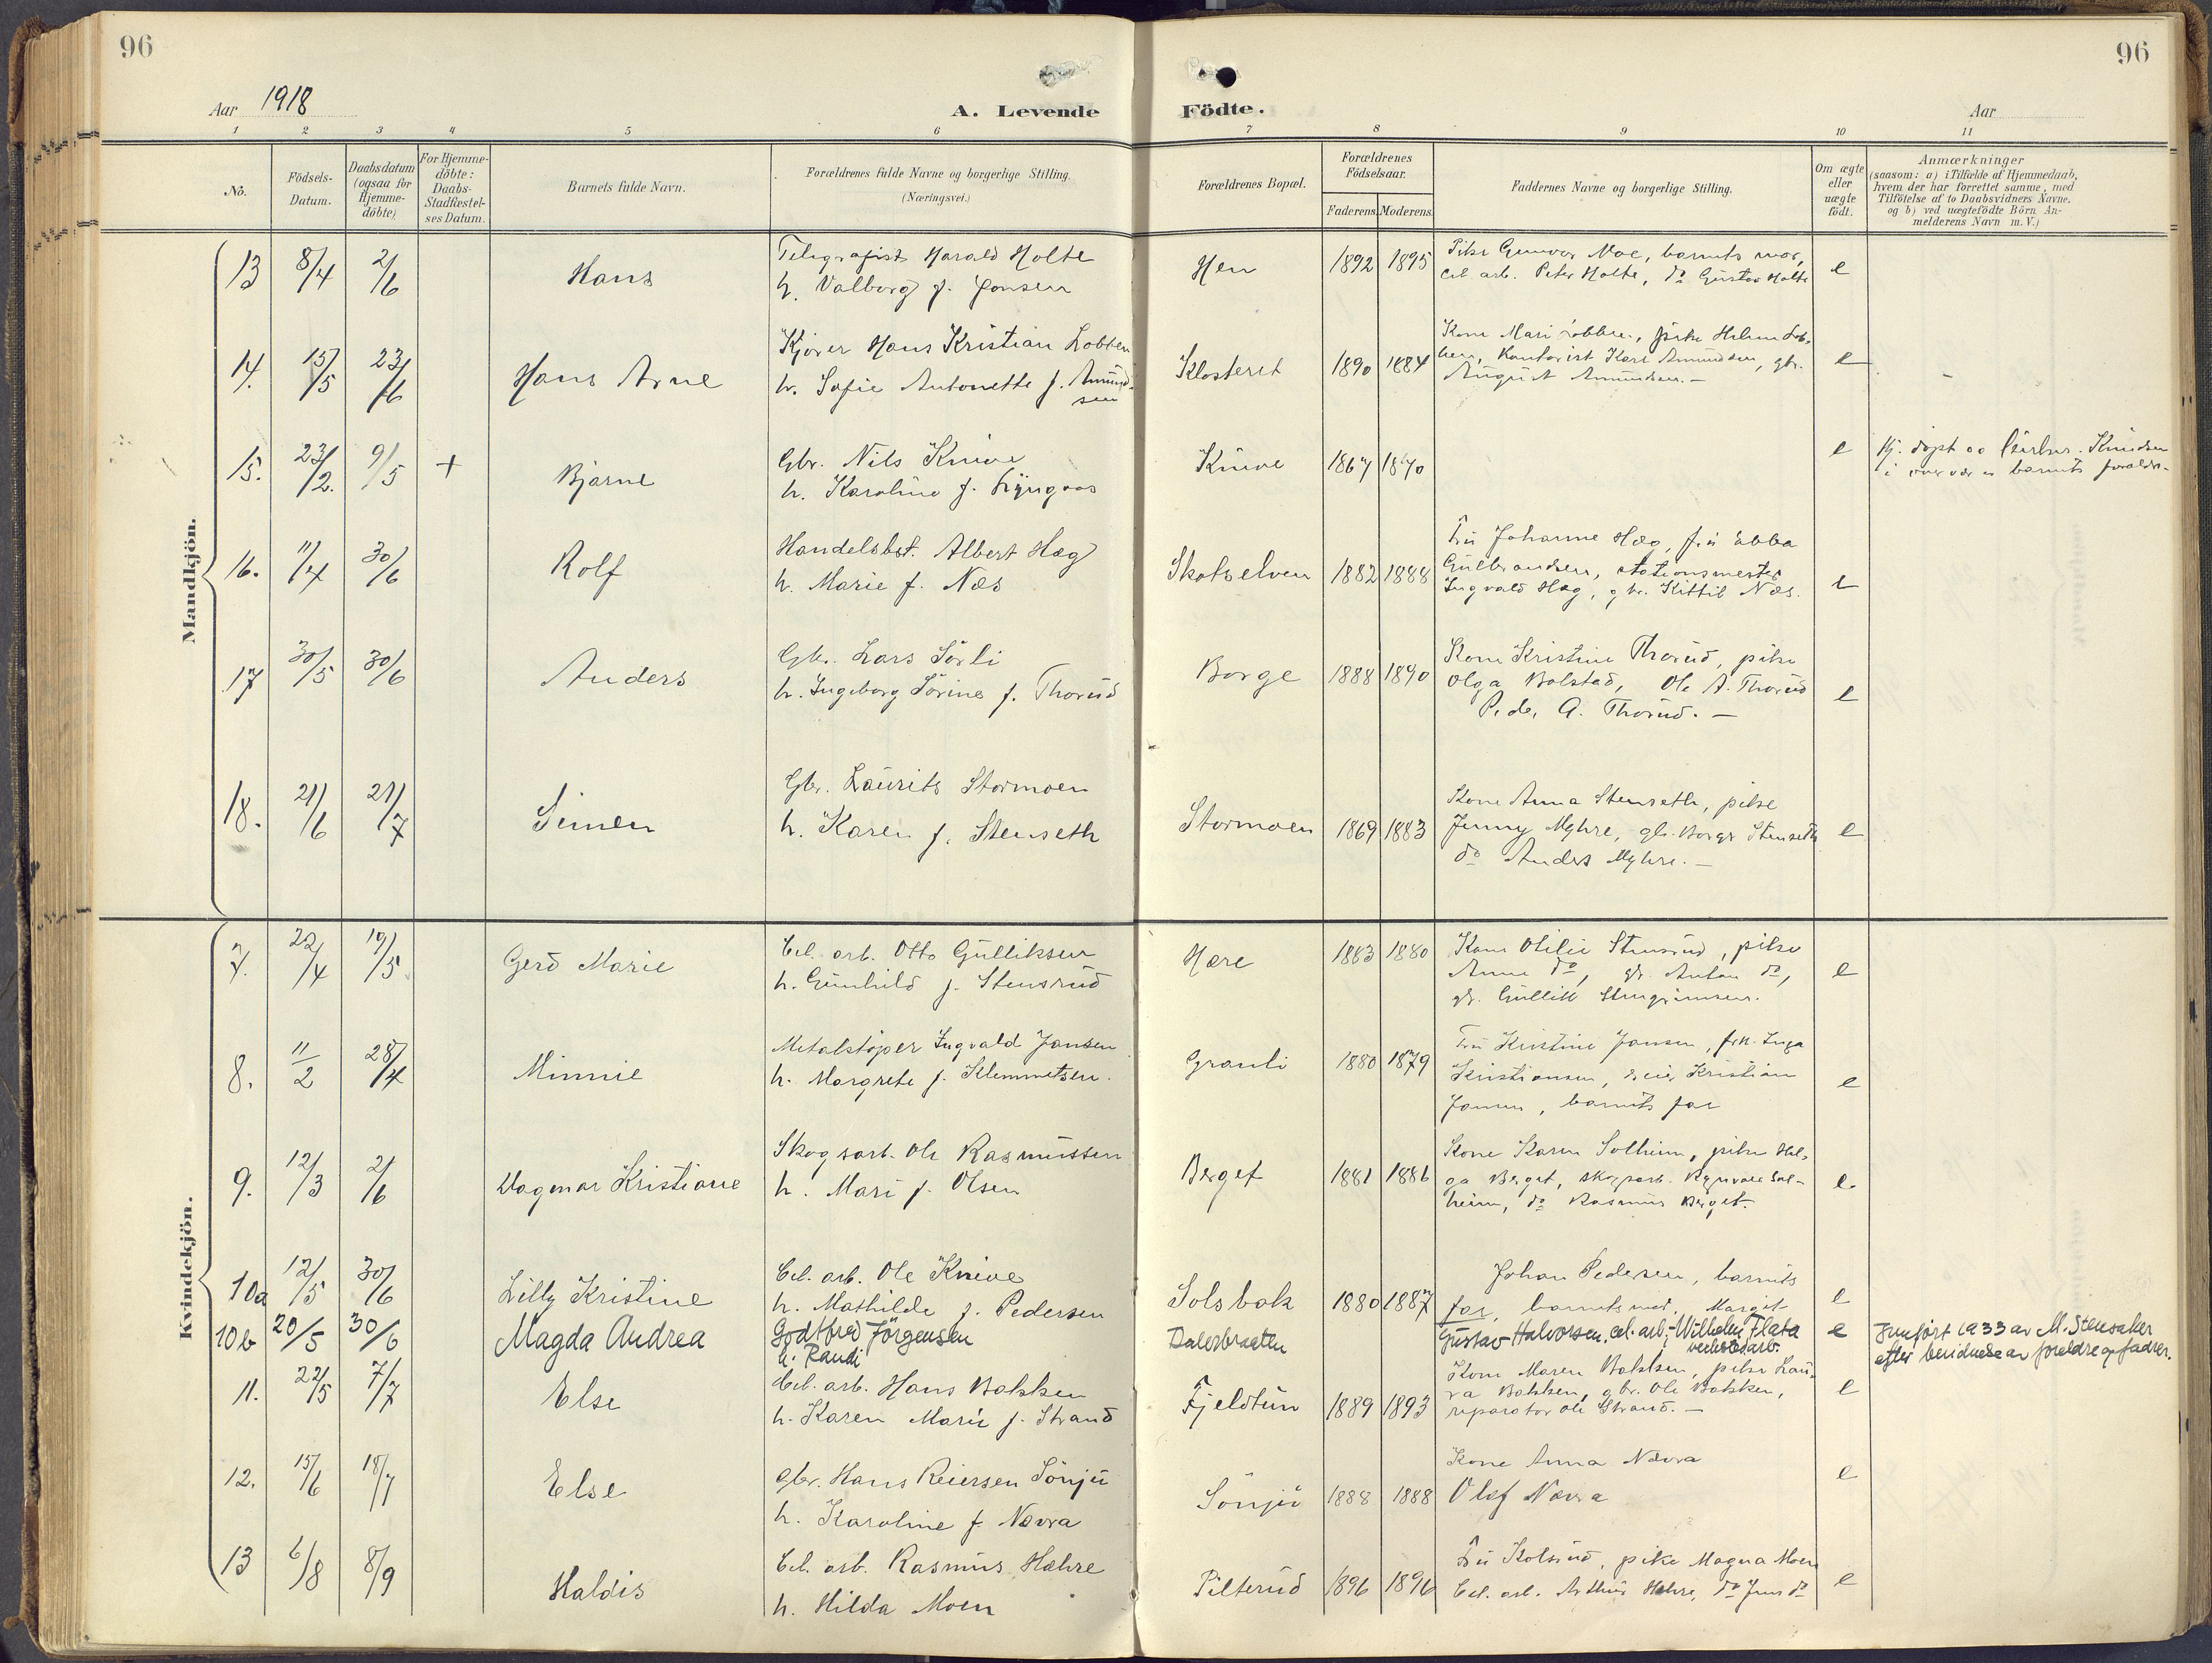 96
96
Aar 1918
A. Levende
Födte.
Aar
1 2 3 4 5 6 7 8 9 10 11
No.
Födsels-
Datum.
Daabsdatum
(ogsaa for
Hjemme-
döbte)
For Hjemme-
döbte:
Daabs-
Stadfæstel-
ses Datum.
Barnets fulde Navn.
Forældrenes fulde Navne og borgerlige Stilling.
(Næringsvei.)
Forældrenes Bopæl.
Forældrenes
Födselsaar.
Faderens. Moderens.
Faddernes Navne og borgerlige Stilling.
Om ægte
eller
uægte
födt.
Anmærkninger
(saasom: a) i Tilfælde af Hjemmedaab,
hvem der har forrettet samme, med
Tilföielse af to Daabsvidners Navne.
og b) ved uægtefödte Börn An-
melderens Navn m. V.)
Mandkjön.
13 8/4 2/6 Hans
Telegrafist Harald Holte
h. Valborg f. Jonsen
Hen 1892 1895
Pike Gunvor Moe, barnets mor,
Cel. arb. Peter Holte, do Gustav Holte
e
14. 15/5 23/6 Hans Arne
Kjörer Hans Kristian Lobben
h. Sofie Antonette f. Amund-
sen
Klosteret 1890 1884
Kone Mari Lobben, pike Helene Lob-
ben, Kontorist Karl Amundsen, gbr.
August Amundsen. —
e
15. 23/2. 9/5 + Bjarne
Gbr. Nils Knive
h. Karoline f. Lyngaas
Knive 1867 1870
e
Hj. döpt av Knudsen
i overvær av barnets foreldre.
16. 11/4 30/6 Rolf
Handelsbst. Albert Hæg
h. Marie f. Næs
Skotselven 1882 1888
Fru Johanne Hæg, fru Ebba
Gulbrandsen, stationsmester
Ingvald Hæg, gbr. Kittil Næs.
e
17 30/5 30/6 Anders
Gbr. Lars Sörli
h. Ingeborg Sörine f. Thorud
Borge 1888 1890
Kone Kristine Thorud, pike
Olga Bolstad, Ole A. Thorud
Peder A. Thorud. —
e
18. 21/6 21/7 Simen
Gbr. Laurits Stormoen
h. Karen f. Stenseth
Stormoen 1869 1883
Kone Anna Stenseth, pike
Jenny Myhre, gbr. Borger Stenseth
do Anders Myhre. —
e
Kvindekjön.
7. 22/4 19/5 Gerd Marie
Cel. arb. Otto Gulliksen
h. Gunhild f. Stensrud
Hære 1883 1880
Kone Otilie Stensrud, pike
Anna do, gbr. Anton do,
gbr. Gullik Stengrimsen.
e
8. 11/2 28/4 Minnie
Metalstöper Ingvald Jansen
h. Margrete f. Klemmetsen.
Granli 1880 1879
Fru Kristine Jansen, frk. Inga
Kristiansen, Kristian
Jansen, barnets far
e
9. 12/3 2/6 Dagmar Kristiane
Skogsarb. Ole Rasmussen
h. Mari f. Olsen
Berget 1881 1886
Kone Karen Solheim, pike Hel-
ga Berget, skogsarb. Sol-
heim, do Rasmus Berget.
e.
10a 12/5 30/6 Lilly Kristine
Cel. arb. Ole Knive
h. Mathilde f. Pedersen
Solsbak 1880 1887
Johan Pedersen, barnets
far, barnets mod. Margit
e
10b 20/5 30/6 Magda Andrea
Godtfred Jörgensen
h. Randi
Dalsbraaten
Gustav Halvorsen, cel. arb, - Wilhelm Flata
verkstedarb.
e
Innfört 1933 av M. Stensaker
efter bevidnelse av foreldre og fadrer.
11. 22/5 7/7 Else
Cel. arb. Hans Bakken
h. Karen Marie f. Strand
Fjeldtun 1889 1893
Kone Maren Bakken, pike Lau-
ra Bakken, gbr. Ole Bakken,
reparatör Ole Strand. —
e
12. 15/6 18/7 Else
Gbr. Hans Reiersen Sönju
h. Karoline f. Nævra
Sönju 1888 1888
Kone Anna Nævra
Olaf Nævra
e
13 6/8 8/9 Haldis
Cel. arb. Rasmus Hæhre
h. Hilda Moen
Pilterud 1896 1896
Fru Kolsrud, pike Magna Moen
Cel. arb. Arthur Hæhre, do Jens do
e